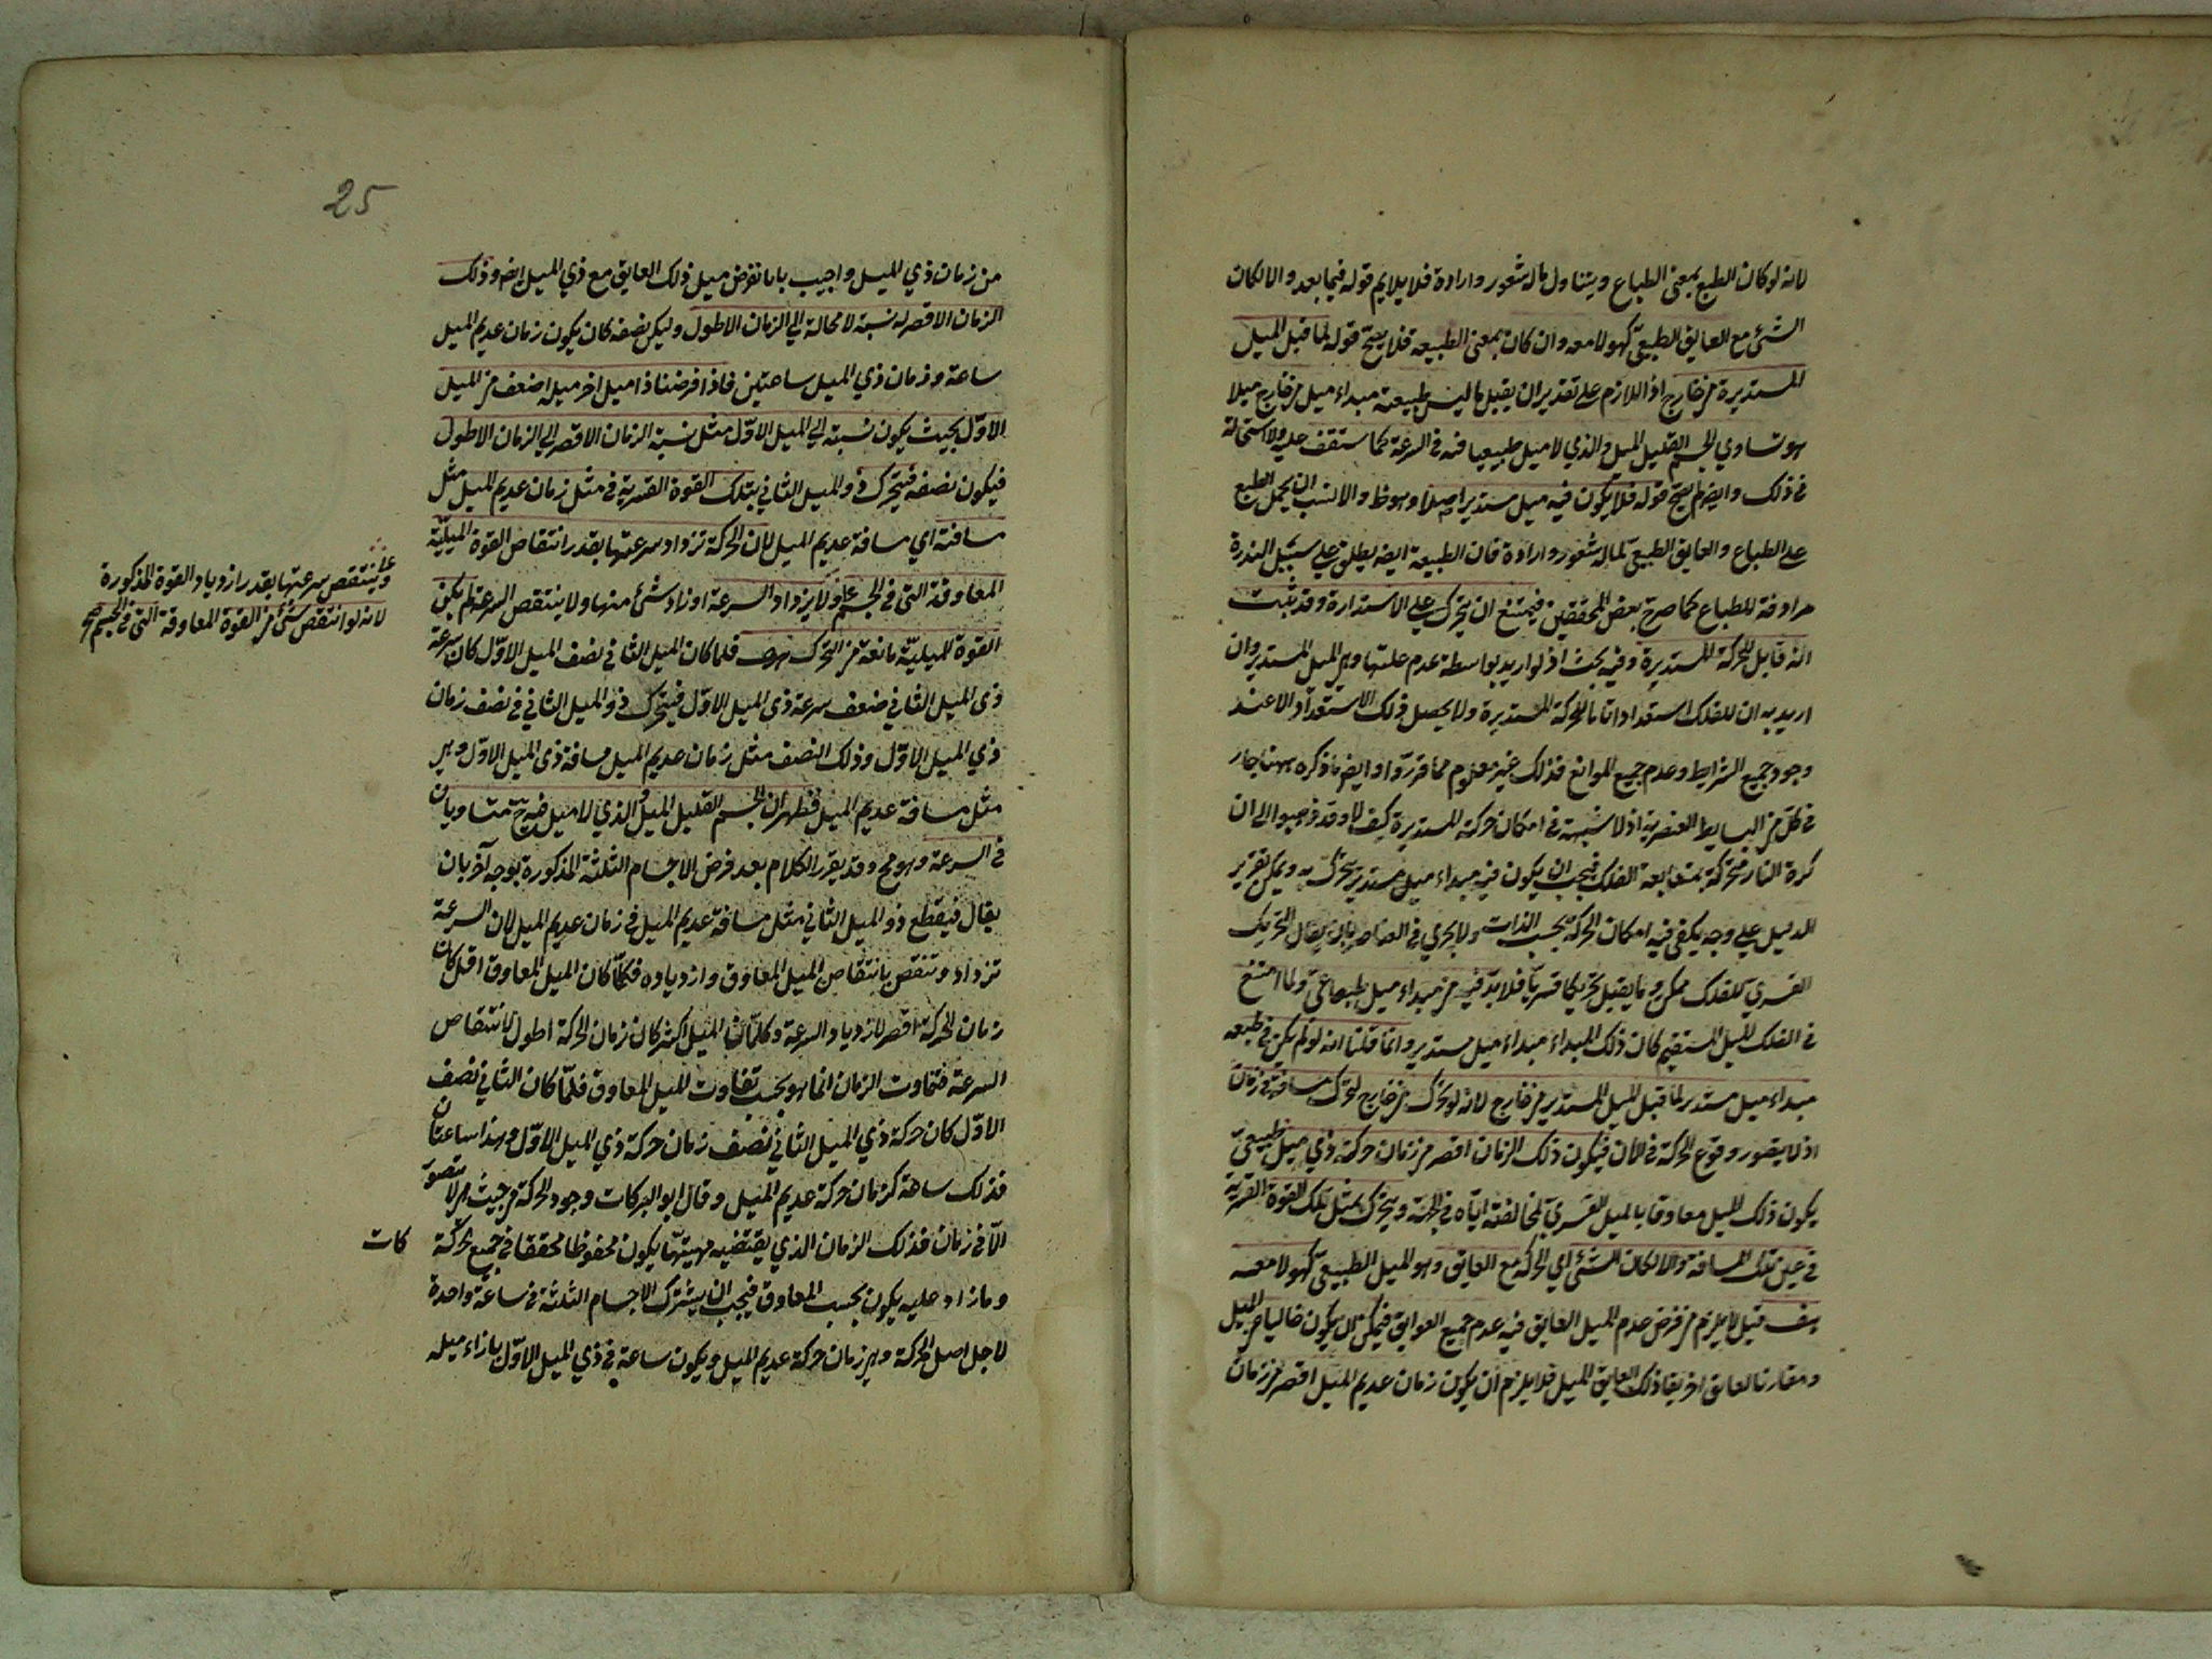 لانه لو كان الطبع بمعنى الطباع ويتناول ما له شعور وارادة فلا يلايم قوله فيما بعد والا لكان
الشئ مع العايق الطبيعى كهو لا معه وان كان بمعنى الطبيعه فلا يصح قوله لما قبل الميل
المستديرة من خارج اذ اللازم على تقدير ان يقبل ما ليس طبيعته مبداء ميل من خارج ميلا
هو تساوي الجسم القليل الميل والذي لا ميل طبيعيا فيه في السرعة كما ستقف عليه ولا استحالة
في ذلك وايضا لم يصح قوله فلا يكون فيه ميل مستدير اصلا وهو ظ والانسب ان يحمل الطبع
على الطباع والعايق الطبيعى لما له شعور وارادة فان الطبيعة ايضا يطلق على سبيل الندرة
مرادفة للطباع كما صرح بعض المحققين فيمتنع ان يتحرك على الاستدارة وقد ثبت
انه قابل للحركة المستديرة وفيه بحث اذ لو اريد بواسطة عدم علتها وهى الميل المستدير وان
اريد به ان للفلك استعدادا تاما للحركة المستديرة ولا يحصل ذلك الاستعداد الا عند
وجود جميع الشرايط وعدم جميع الموانع فذلك غير معلوم مما قرروا وايضا ما ذكره ههنا جار
في كل من البسايط العنصرية اذ لا شبهة في امكان حركته المستديرة كيف لا وقد ذهبوا الى ان
كرة النار متحركة بمتابعة الفلك فيجب ان يكون فيه مبداء ميل مستدير يتحرك به ويمكن تقرير
الدليل على وجه يكفى فيه امكان الحركة بحسب الذات ولا يجري في العناصر بان يقال التحريك
القسري للفلك ممكن وما يقبل تحريكا قسريا فلا بد فيه من مبداء ميل طباعى ولما امتنع
في الفلك الميل المستقيم كان ذلك المبداء مبداء ميل مستدير وانما قلنا انه لو لم يكن في طبعه
مبداء ميل مستدير لما قبل الميل المستدير من خارج لانه لو تحرك من خارج لتحرك مسافة في زمان
اذ لا يتصور وقوع الحركة في الان فيكون ذلك الزمان اقصر من زمان حركة ذي ميل طبيعى
يكون ذلك الميل معاوقا بالميل القسري لمخالفته اياه في الجهة ويتحرك بمثل تلك القوة القسرية
في عين تلك المسافة والا لكان الشئ اي الحركة مع العايق وهو الميل الطبيعى كهو لا معه
هف قيل لا يلزم من فرض عدم الميل العايق فيه عدم جميع العوايق فيمكن ان يكون خاليا عن الميل
ومقارنا لعايق اخر يعاذ ذلك العايق الميل فلا يلزم ان يكون زمان عديم الميل اقصر من زمان
25
من زمان ذي الميل واجيب بانا نفرض ميل ذلك العايق مع ذي الميل ايضا وذلك
الزمان الاقصر له نسبة لا محالة الى الزمان الاطول وليكن نصفه كان يكون زمان عديم الميل
ساعة وزمان ذي الميل ساعتين فاذا فرضنا ذا ميل اخر ميله اضعف من الميل
الاول بحيث يكون نسبته الى الميل الاول مثل نسبة الزمان الاقصر الى الزمان الاطول
فيكون نصفه فيتحرك ذو الميل الثاني بتلك القوة القسرية في مثل زمان عديم الميل مثل
مسافته اي مسافة عديم الميل لان الحركة تزداد سرعتها بقدر انتقاص القوة الميلية
المعاوقة التى في الجسم ولا يزداد السرعة او زاد شئ منها ولا ينتقص السرعة لم يكن
القوة الميلية مانعة من التحرك هف فلما كان الميل الثاني نصف الميل الاول كان سرعة
ذى الميل الثاني ضعف سرعة ذى الميل الاول فيتحرك ذو الميل الثاني في نصف زمان
ذي الميل الاول وذلك النصف مثل زمان عديم الميل مسافة ذى الميل الاول وهى
مثل مسافة عديم الميل فظهر ان الجسم القليل الميل والذي لا ميل فيه يتساويان
في السرعة وهو مح وقد يقرر الكلام بعد فرض الاجسام الثلثة المذكورة بوجه آخر بان
يقال فيقطع ذو الميل الثاني مثل مسافة عديم الميل في زمان عديم الميل لان السرعة
تزداد وتنقص بانتقاص الميل المعاوق وازدياده فكلما كان الميل المعاوق اقل كان
زمان الحركة اقصر لازدياد السرعة وكلما كان الميل اكثر كان زمان الحركة اطول لانتقاص
السرعة فتفاوت الزمان انما هو بحسب تفاوت الميل المعاوق فلما كان الثاني نصف
الاول كان حركة ذي الميل الثاني نصف زمان حركة ذي الميل الاول وهذا ساعتان
فذلك ساعة كزمان حركة عديم الميل وقال ابو البركات وجود الحركة من حيث هى لا يتصور
الا في زمان فذلك الزمان الذي يقتضيه مهيتها يكون محفوظا محققا في جميع الحركات
وما زاد عليه يكون بحسب المعاوق فيجب ان يشترك الاجسام الثلثة في ساعة واحدة
لاجل اصل الحركة وهى زمان حركة عديم الميل ويكون ساعة في ذي الميل الاول بازاء ميله
وينتقص سرعتها بقدر ازدياد القوة المذكورة
لانه لو انتقص شئ من القوة المعاوقة التى في الجسم صح